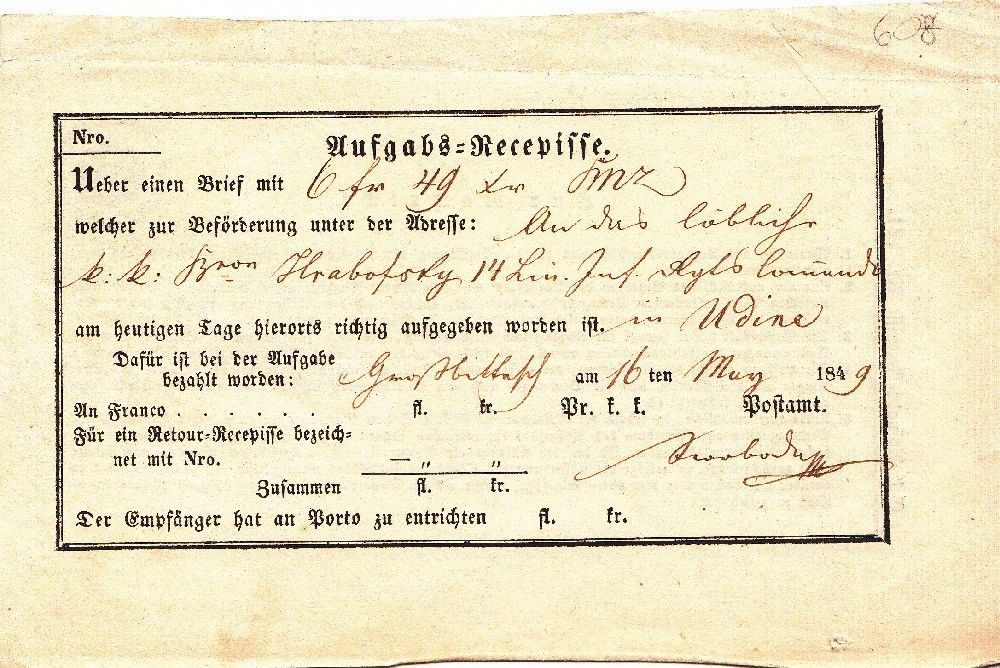 608
Nro.
Aufgabs-Recepisse.
Ueber einen Brief mit 6 fr 49 xr
welcher zur Beförderung unter der Adresse: An das löbliche
k. k. Hrabofsky 14 Lin. Inf. Rgts Commando
am heutigen Tage hierorts richtig aufgegeben worden ist. in Udine
Dafür ist bei der Aufgabe
bezahlt worden: Großbittesch am 16 ten May 1849
An Franco . . . . . . fl. kr. Pr. k. k. Postamt.
Für ein Retour-Recepisse bezeich-
net mit Nro. — „ „ Swoboda
Zusammen fl. kr.
Der Empfänger hat an Porto zu entrichten fl. kr.